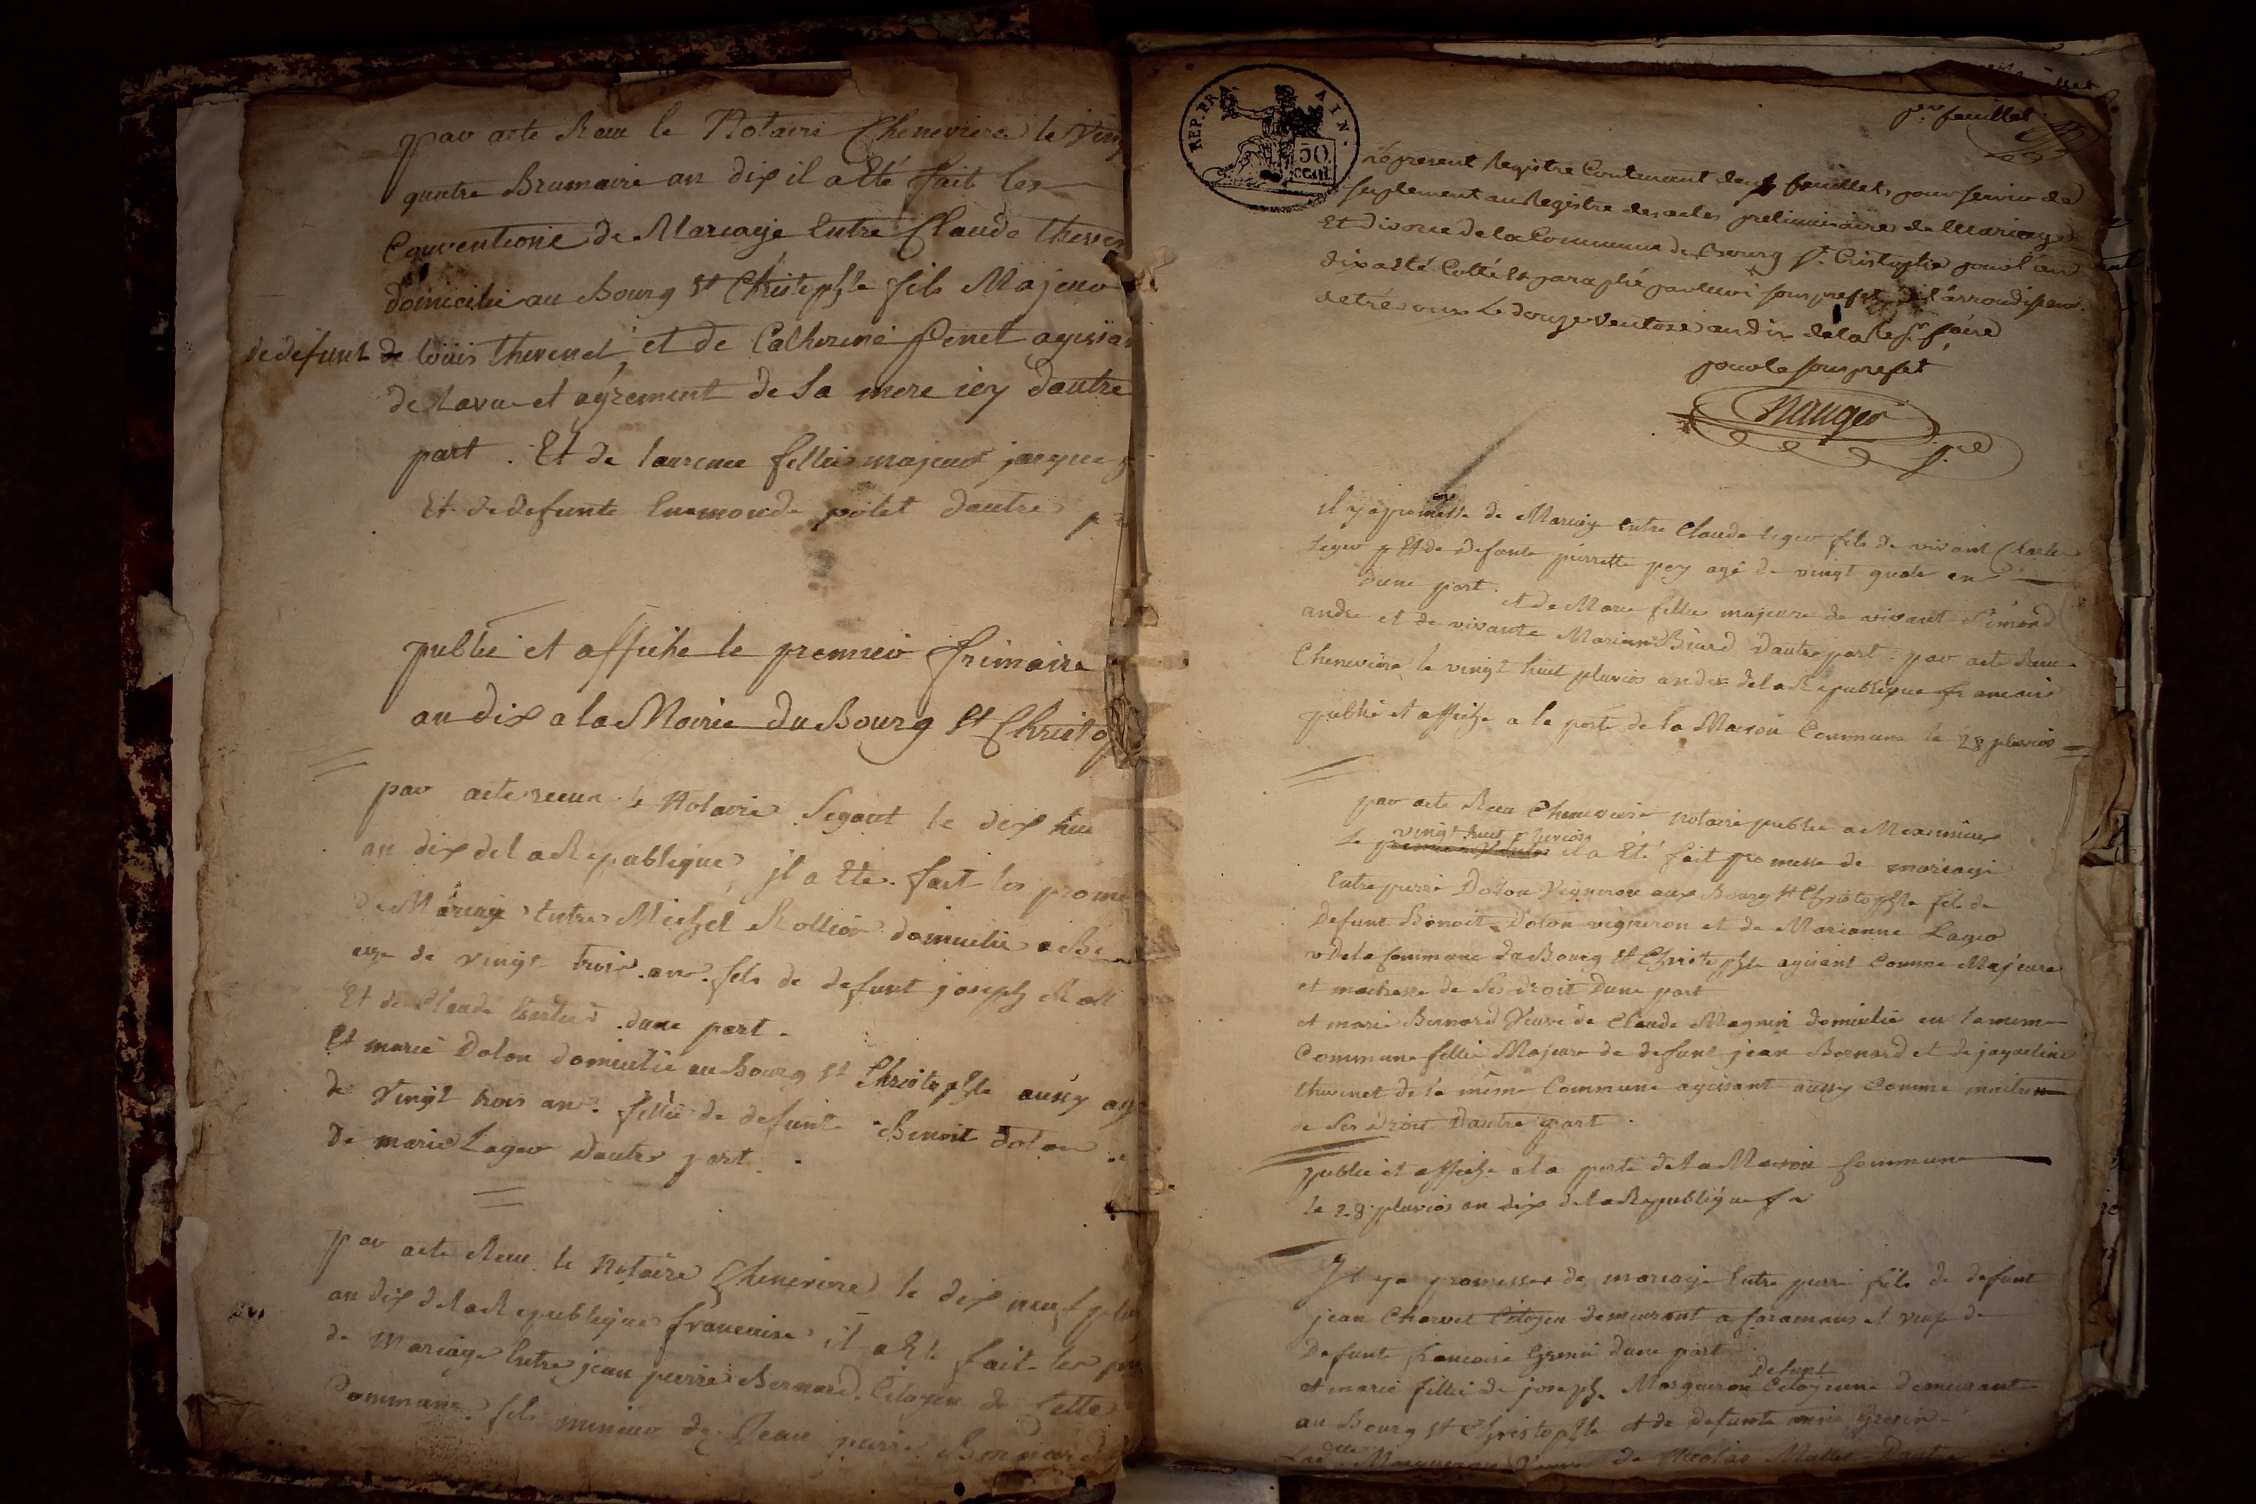 par acte Recu le Notaire Cheneviere le Ving
quatre Brumaire an dix il a Eté fait les
Conventions de Mariage Entre Claude theven
domicilié au Bourg St Christophle fils Majeur
de defunt de louis thevenet et de Catherine Penet agissan
de Lavu et agrement de Sa mere icy dautre
part . Et de laurence fillie majeur jacque
Et de defunte Enemonde dautre
publié et affiche le premier frimaire
an dix a la Mairie du Bourg St Christo
par acte recu le Notaire Segaut le dix
an dix de la Republique il a Ete fait les prome
de Mariage Entre Michel Rollier domicilié a
age de vingt trois an fils de defunt joseph Roll
Et de Claude dune part
Et marie Dolon domicilié au Bourg St Christophle aussy ag
de Vingt trois an fillie de defunt Benoit Dolon
de marie Lager dautre part
par acte Recu le Notaire Cheneviere le dix neuf
an dix de la Republique francaise il a Eté fait les
de Mariage Entre jean pierre Bernard Citoyen de Cette
Commune fils mineur de Jean pierre Bernard
REP. FRA AIN
50 CENT
1er feuillet
le present Registre Contenant deux feuillet, pour servir de
supplement au Registre des actes preliminaires de Mariage
Et divorce de la Commune de Bourg St Cristophe pour l'an
dix a été Cotté et paraphé par nous sous prefet de l'arrondissem.
de trevoux Le douze ventose an dix de la Rep. fse
pour le sous prefet
Nauger
il y a promesse de Mariage Entre Claude leger fils de vivant Charle
Leger Et de defunte pierrette pey agé de vingt quatre an
dune part. et de Marie fillie majeure de vivant
andre et de vivante Marianne dautre part. par acte Recu
Cheneviere le vingt huit pluvios an dix de la Republique francaise
publié et affiche a la porte de la Maison Commune le 28 pluvios
par acte Recu Cheneviere notaire public a Meximieux
Le vingt huit pluviose il a Eté fait promesse de mariage
Entre pierre Dolon Vigneron aux Bourg St Christophle fils de
Defunt Benoit Dolon vigneron et de Marianne Lager
de la Commune du Bourg St Christophle agissant Comme Majeure
et maitresse de Ses droit Dune part
et marie Bernard Veuve de Claude Magnin domicilié en la meme
Commune fillie Majeure de defunt jean Bernard et de jaqueline
thevenet de la même Commune agissant aussy Comme maitresse
de Ses droit Dautre part .
publié et affiche a la porte de la Maison Commune
le 28 pluvios an dix de la Republique f
Il y a promesse de mariage Entre pierre fils de defunt
jean Charvet Citoyen demeurant a faramans et veuf de
Defunte francoise dune part
et marie fillie de joseph Morgueron Defunt Citoyenne demeurant
au Bourg St Christophle et de defunte
Veuve de Nicolas